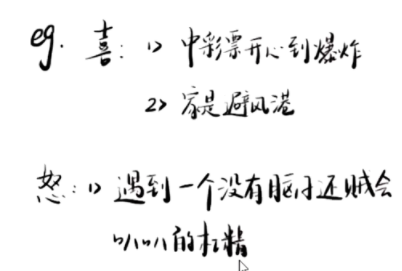 eg. 喜: 1> 中彩票开心到爆炸
2> 家是避风港
怒: 1> 遇到一个没有脑子还贼会
叭叭的杠精